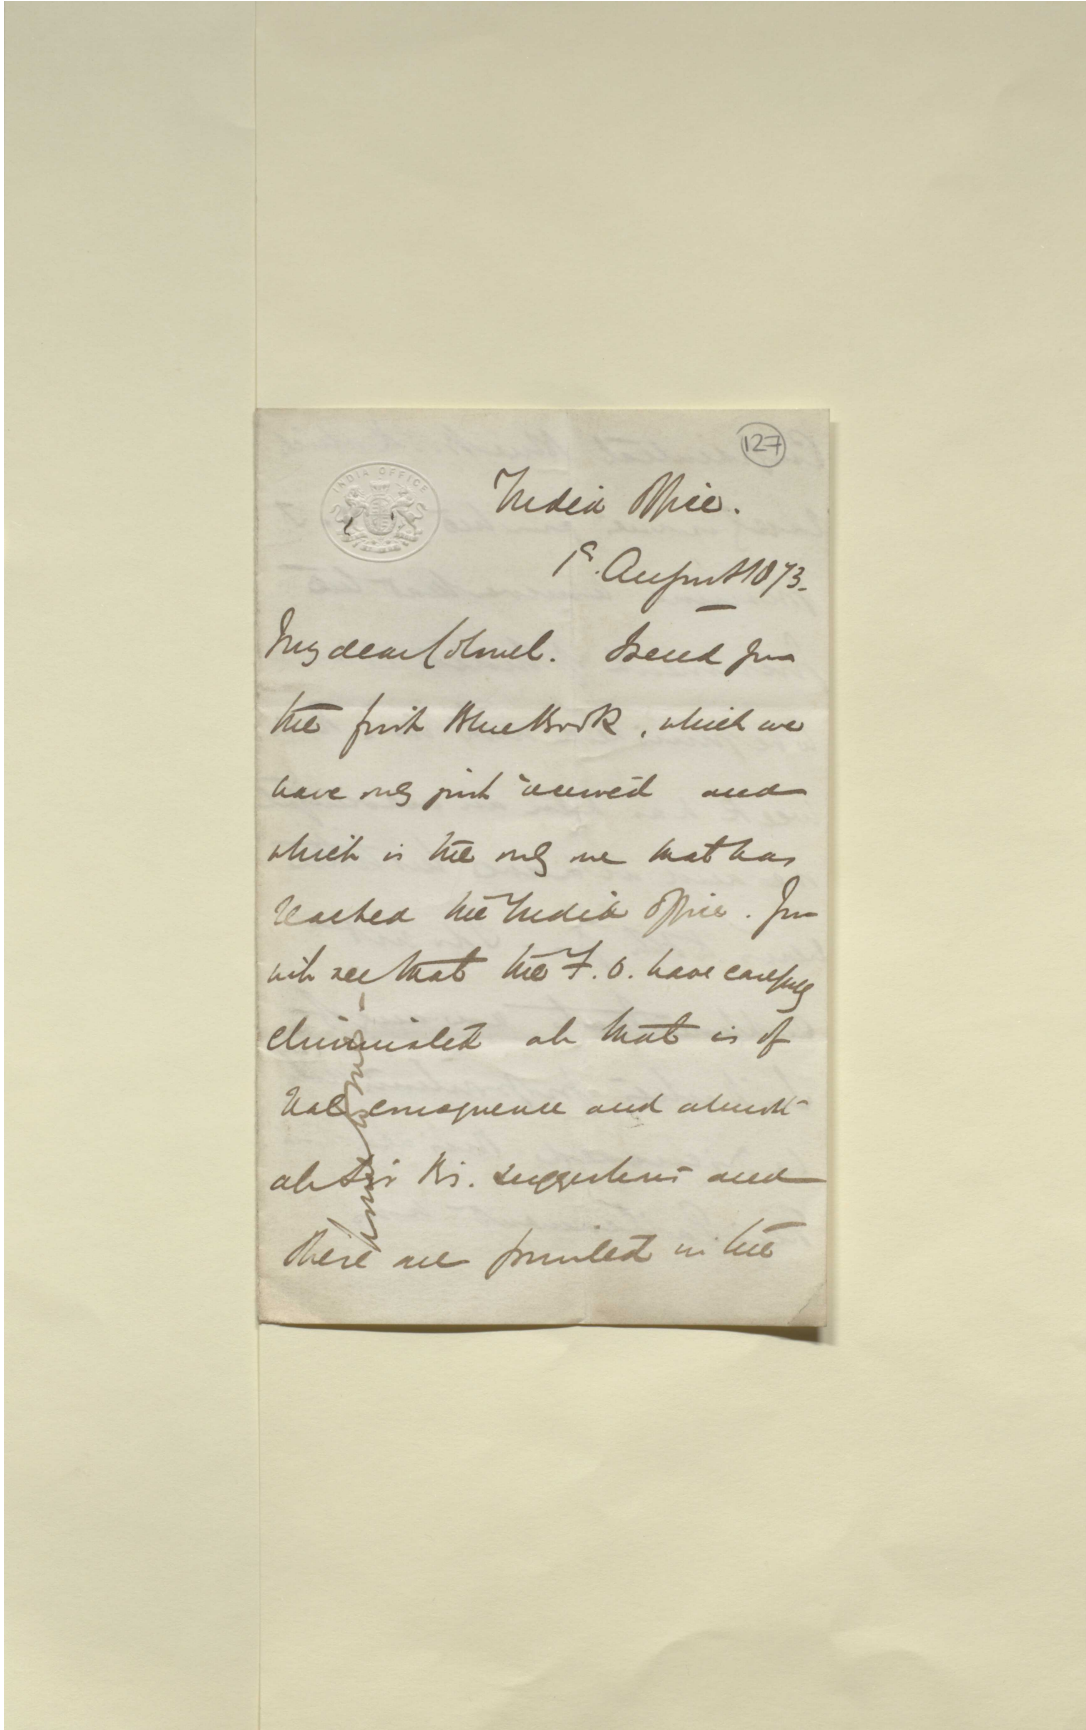 127
INDIA OFFICE
India Office.
1st. August 1873.
My dear Colonel. I send you
the first Blue Book, which we
have only just received and
which is the only one that has
reached the India Office. You
will see that the F. O. have carefully
eliminated all that is of
real consequence and almost
all Sir B's. suggestions and
these are printed in the